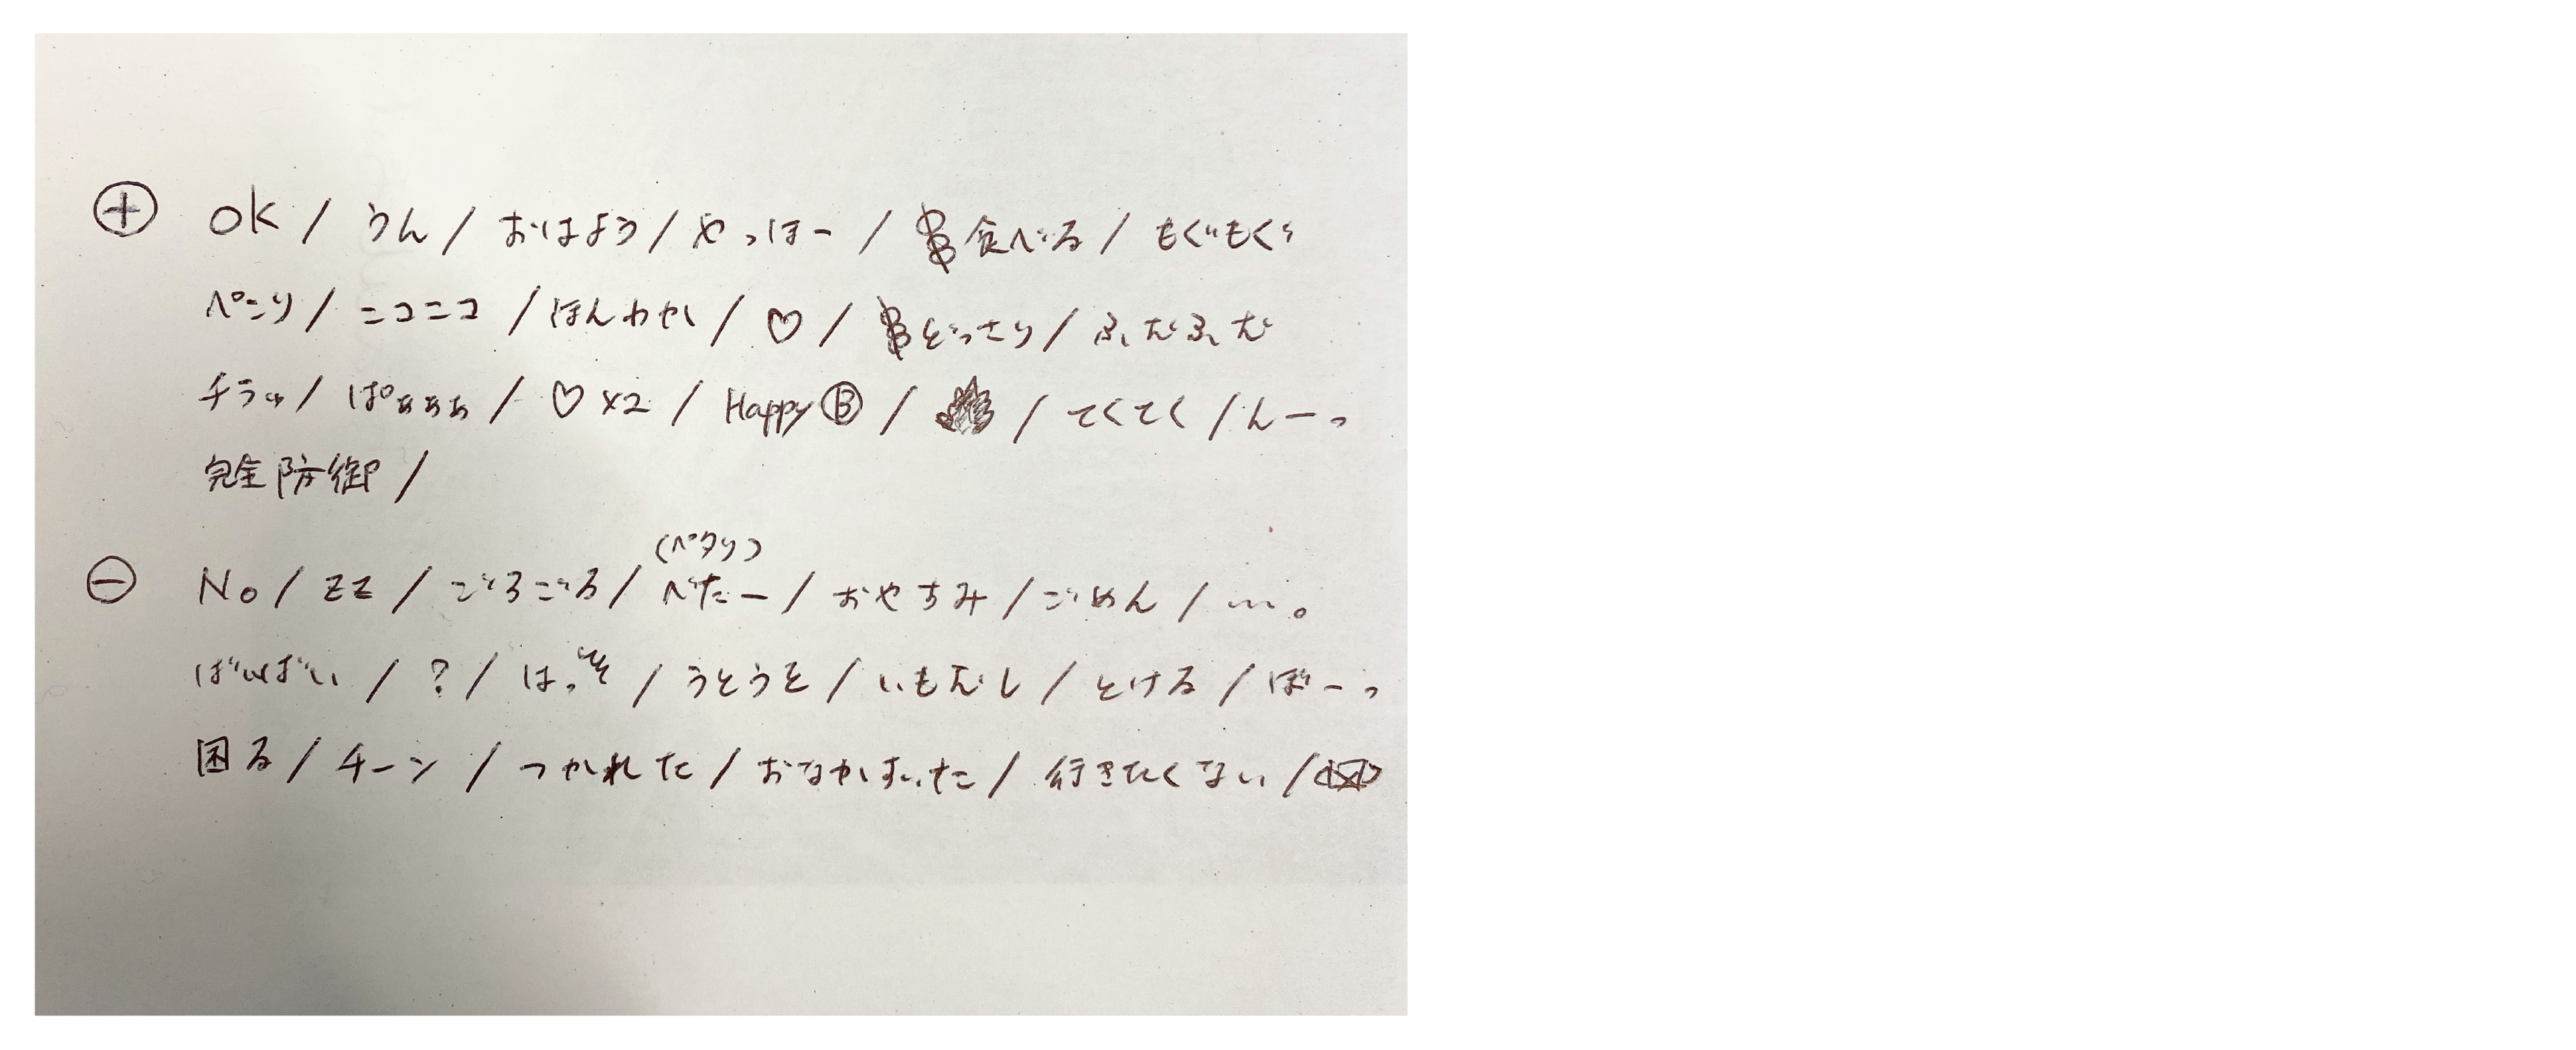 ⊕ OK / うん / おはよう / やっほー / 食べる / もぐもぐ
ペこり / ニコニコ / ほんわか / ♡ / どっさり / ふむふむ
チラッ / ぱぁぁぁ / ♡×2 / Happy Ⓑ / / てくてく / んーっ
完全防御 /
(ペタリ)
⊖ No / zz / ごろごろ / べたー / おやすみ / ごめん / …。
ばいばい / ? / はっ / うとうと / いもむし / とける / ぼーっ
困る / チーン / つかれた / おなかすいた / 行きたくない /